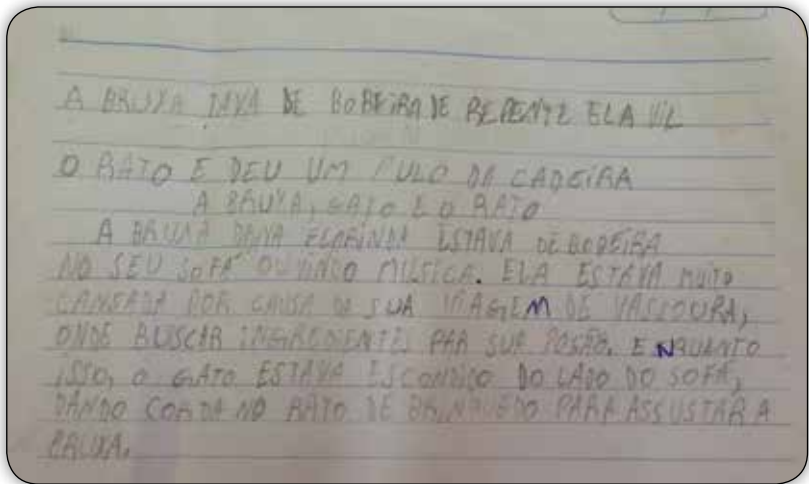 A BRUXA TAVA DE BOBEIRA DE REPENTE ELA VIL
O RATO E DEU UM PULO DA CADEIRA
A BRUXA, GATO E O RATO
A BRUXA DONA FLORINDA ESTAVA DE BOBEIRA
NO SEU SOFÁ OUVINDO MUSICA. ELA ESTAVA MUITO
CANSADA POR CAUSA DA SUA VIAGEM DE VASSOURA,
ONDE BUSCAR INGREDIENTES PAR SUA POSÃO. ENQUANTO
ISSO, O GATO ESTAVA ESCONDIDO DO LADO DO SOFÁ,
DANDO CORDA NO RATO DE BRINQUEDO PARA ASSUSTAR A
BRUXA.